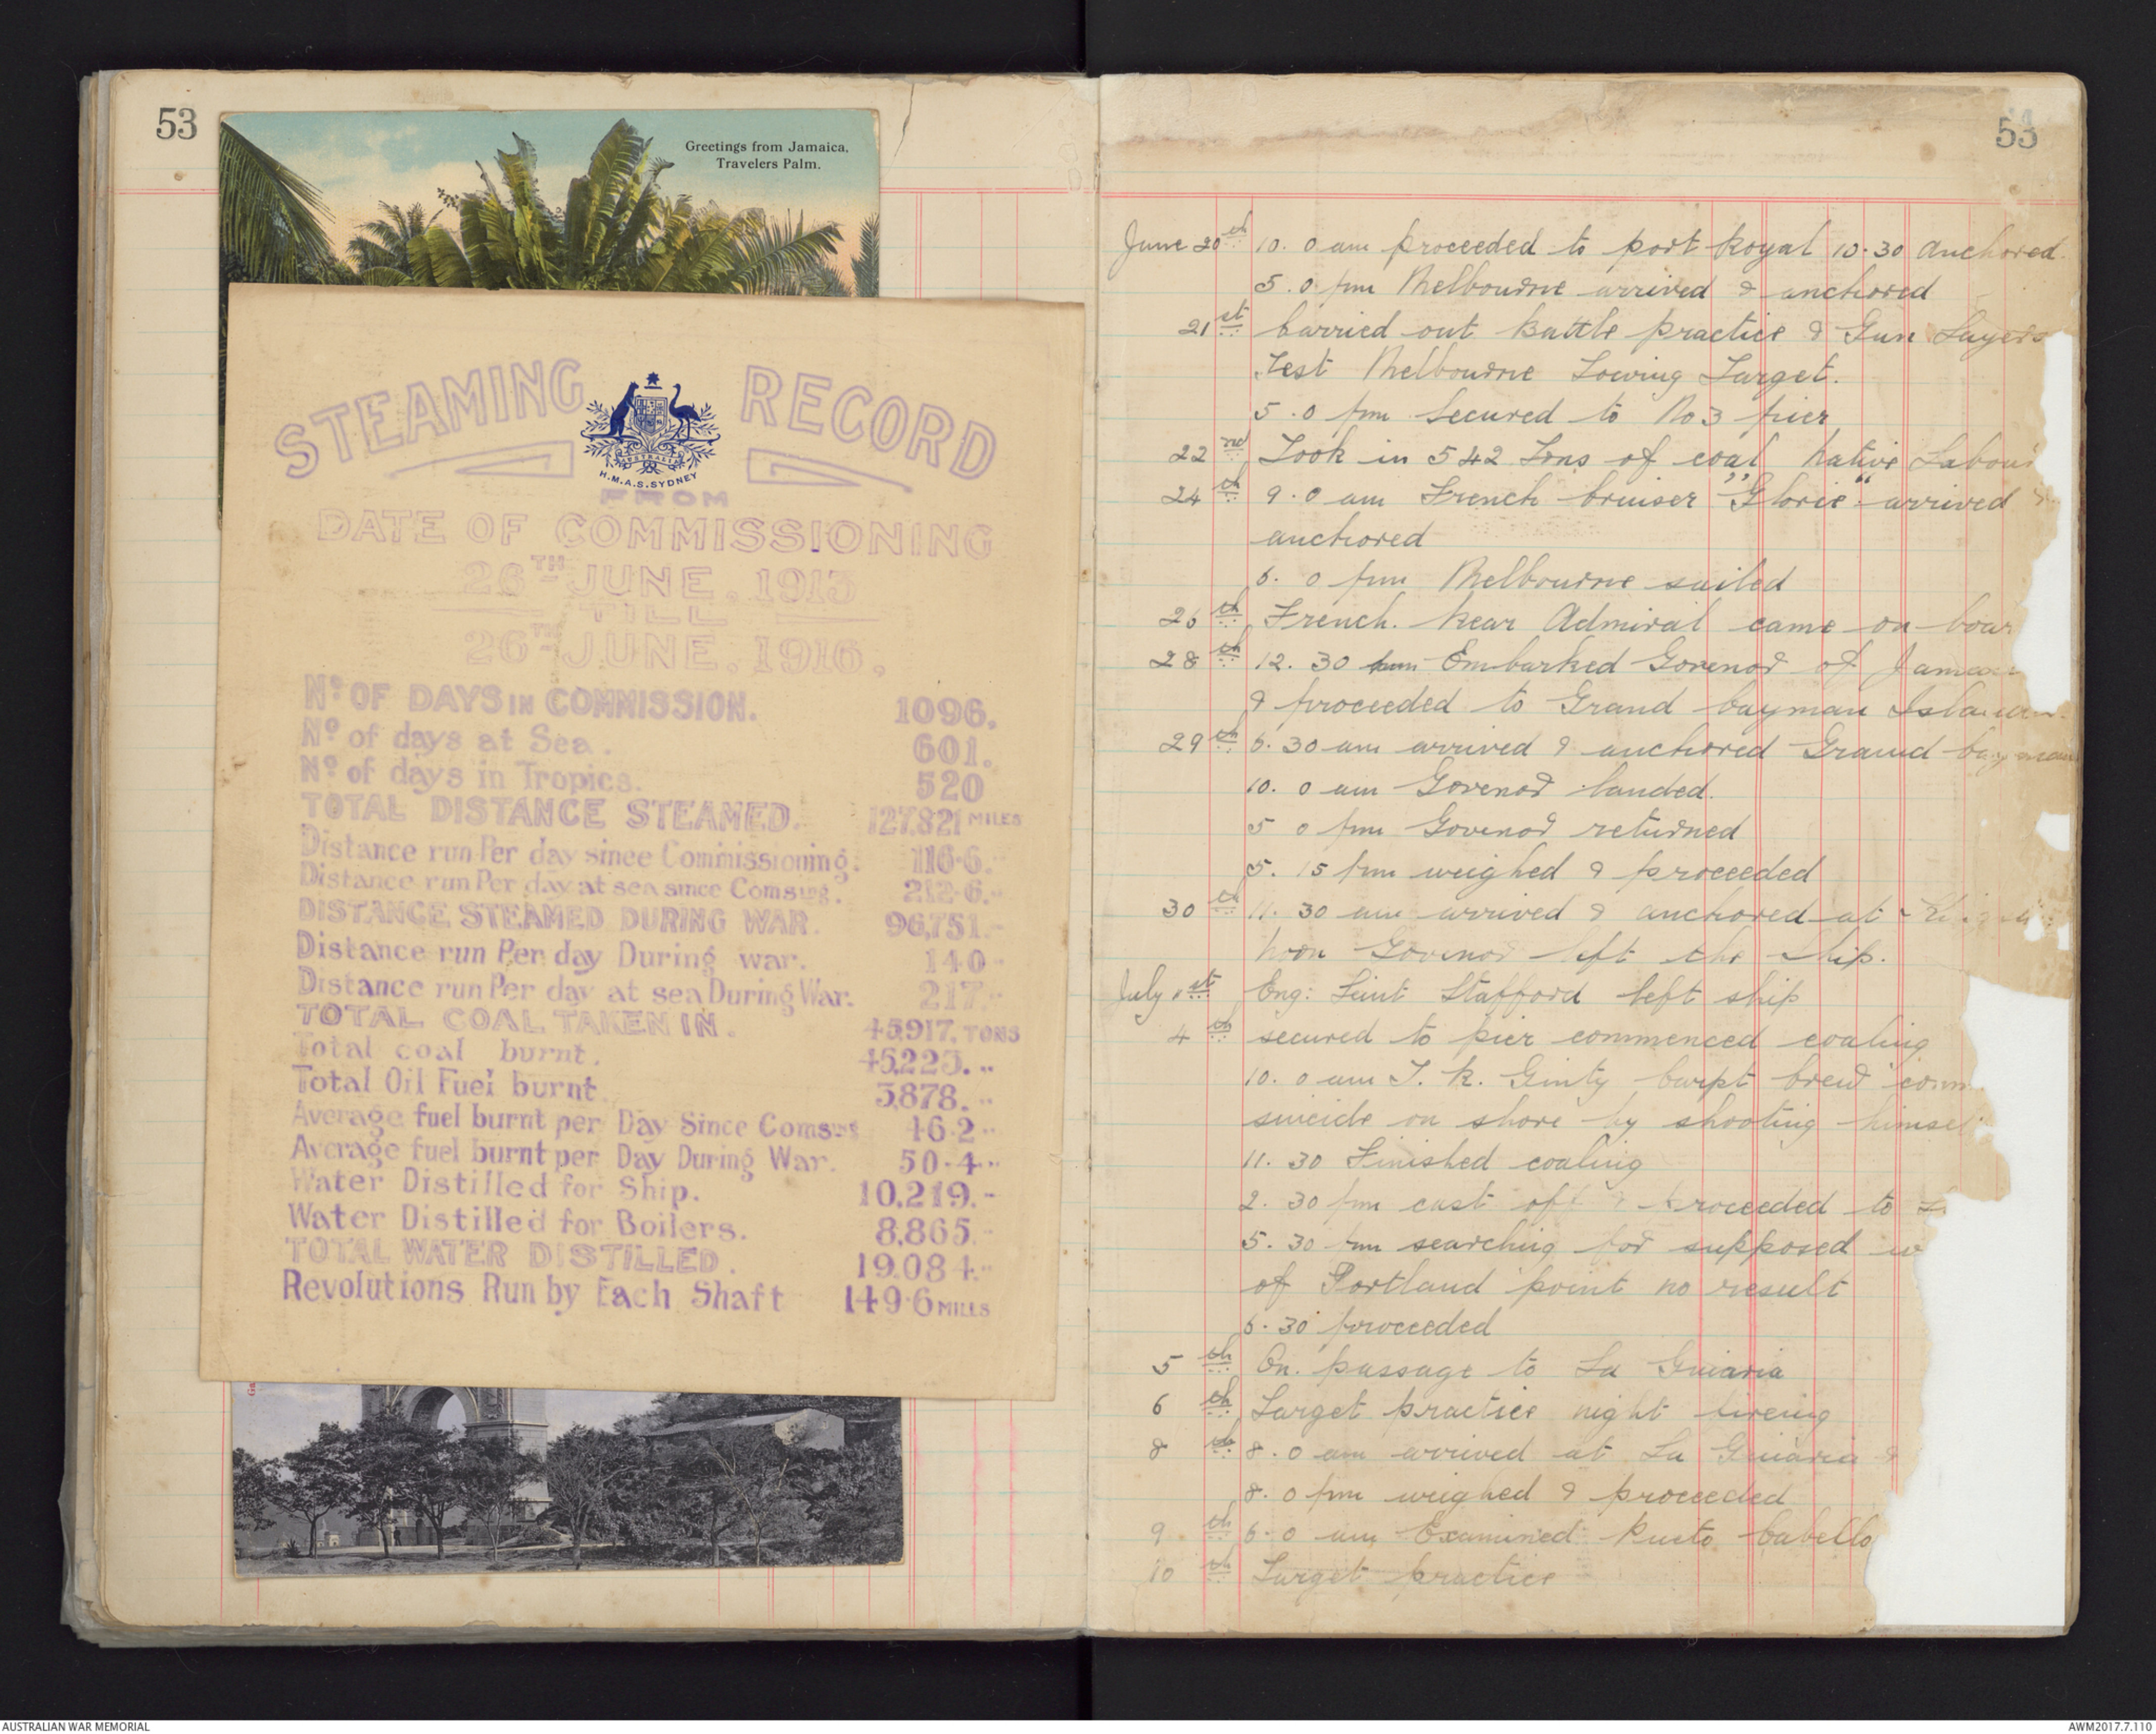 53
Greetings from Jamaica,
Travelers Palm.
STEAMING RECORD
AUSTRALIA
H.M.A.S. SYDNEY
FROM
DATE OF COMMISSIONING
26TH JUNE. 1913
TILL
26TH JUNE. 1916.
No OF DAYS IN COMMISSION. 1096.
No of days at Sea. 601.
No of days in Tropics. 520
TOTAL DISTANCE STEAMED. 127,821 MILES
Distance run Per day since Commissioning. 116·6.
Distance run Per day at sea since Comsing. 212·6.
DISTANCE STEAMED DURING WAR. 96,751.
Distance run Per day During war. 140
Distance run Per day at sea During War. 217.
TOTAL COAL TAKEN IN. 45,917. TONS
Total coal burnt. 45,223. "
Total Oil Fuel burnt. 3,878. "
Average fuel burnt per Day Since Comsng 46·2 "
Average fuel burnt per Day During War. 50·4 "
Water Distilled for Ship. 10,219. "
Water Distilled for Boilers. 8,865. "
TOTAL WATER DISTILLED. 19,084. "
Revolutions Run by Each Shaft 149·6 MILLS
53
June 20th 10. 0 am proceeded to port Royal 10.30 anchored.
5. 0 pm Melbourne arrived & anchored
21st Carried out Battle practice & Gun Layers
Test Melbourne Towing Target.
5. 0 pm Secured to No 3 pier
22nd Took in 542 Tons of coal Native Labour
24th 9. 0 am French Cruiser "Glorie" arrived
anchored
6. 0 pm Melbourne sailed
26th French. Rear Admiral came on boar
28th 12. 30 Embarked Govenor of Jamaica
& proceeded to Grand Cayman Island
29th 6. 30 am arrived & anchored Grand Cayman
10. 0 am Govenor landed.
5 0 pm Govenor returned
5. 15 pm weighed & proceeded
30th 11. 30 am arrived & anchored at
Noon Govenor left the Ship.
July 1st Eng: Leiut Stafford left ship
4th secured to pier commenced coaling
10. 0 am J. R. Ginty Carpt Crew comm
suicide on shore by shooting himsel
11. 30 Finished coaling
2. 30 pm cast off & proceeded to
5. 30 pm searching for supposed w
of Portland point no result
6. 30 proceeded
5th On. passage to La Guiaria
6th Target practice night fireing
8th 8. 0 am arrived at La Guiaria &
8. 0 pm weighed & proceeded
9th 6. 0 am Examined Pueto Cabello
10th Target practice
AUSTRALIAN WAR MEMORIAL
AWM2017.7.110